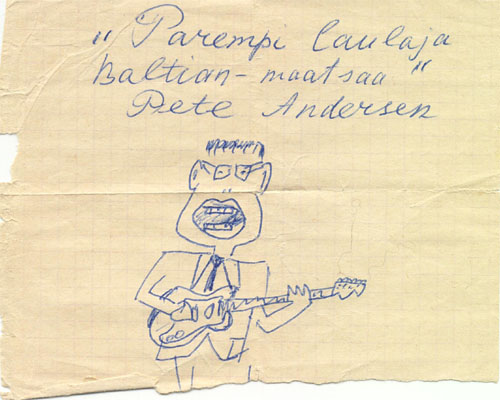 „Parempi laulaja
Baltian-maatsaa“
Pete Andersen